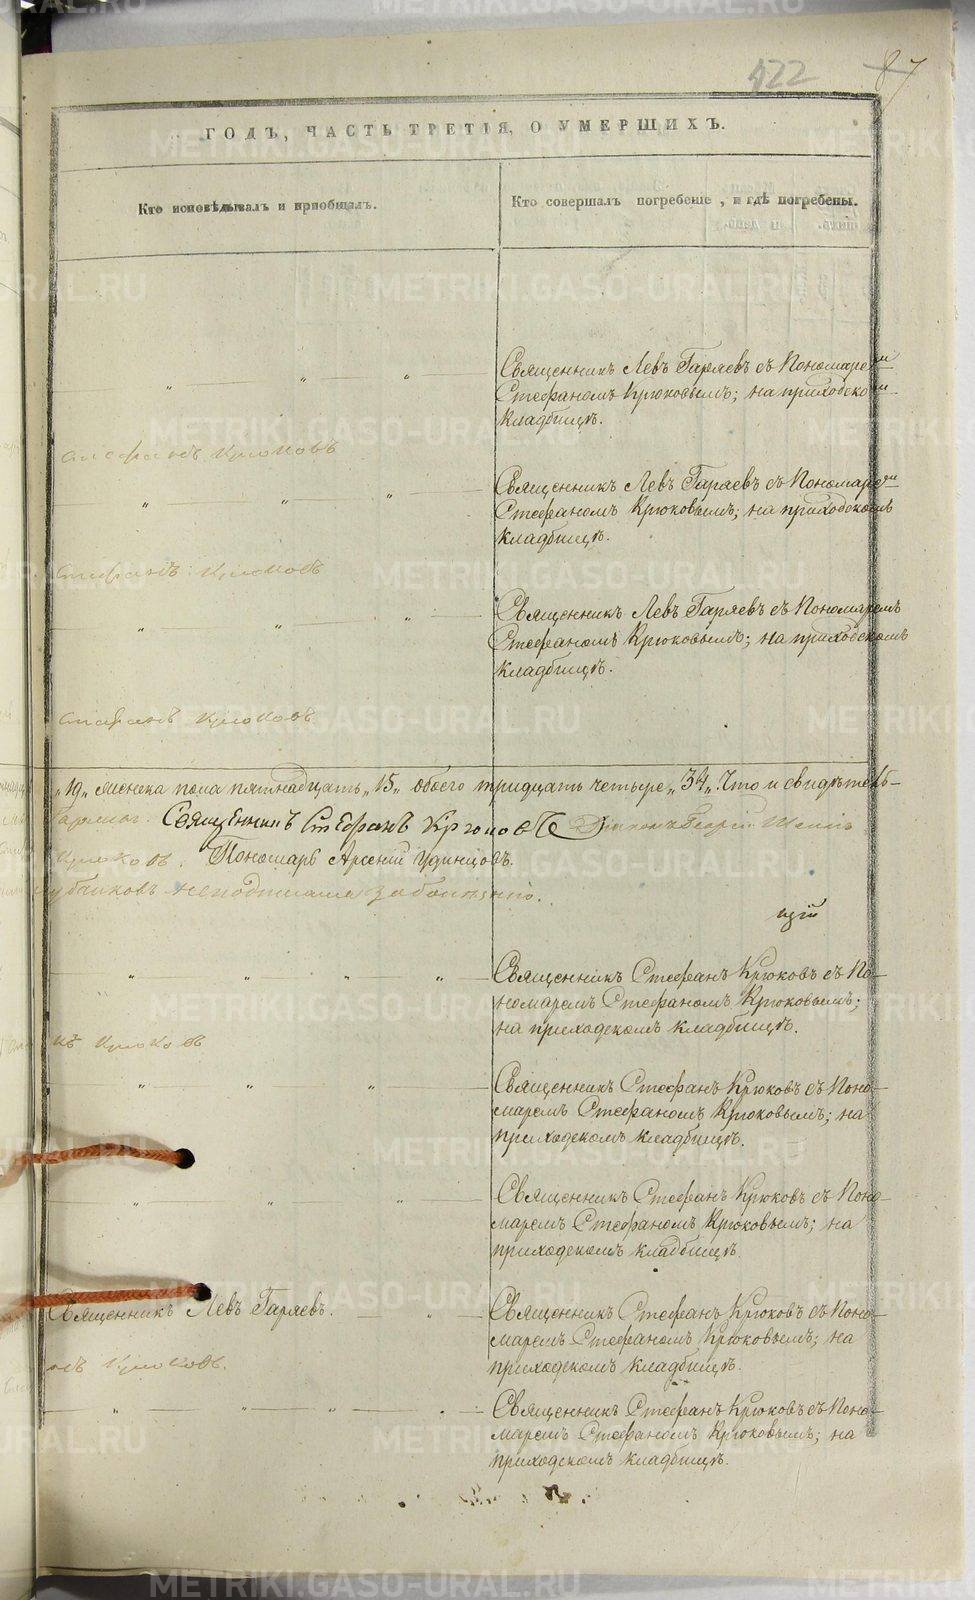 422 87
ГОДЪ, ЧАСТЬ ТРЕТІЯ, О УМЕРШИХЪ.
Кто исповѣдывалъ и пріобщалъ.
Кто совершалъ погребеніе, и гдѣ погребены.
Священникъ Левъ Гаряевъ съ Пономаремъ
Стефаномъ Крюковымъ; на приходскомъ
кладбищѣ.
Стефанъ Крюковъ
Священникъ Левъ Гаряевъ съ Пономаремъ
Стефаномъ Крюковымъ; на приходскомъ
кладбищѣ.
Стефанъ Крюковъ
Священникъ Левъ Гаряевъ съ Пономаремъ
Стефаномъ Крюковымъ; на приходскомъ
кладбищѣ.
Стефанъ Крюковъ
„19„ женска пола пятнадцать „15„ обоего тридцать четыре „34„. Что и свидѣтель-
Священникъ Стефанъ Крюковъ Діаконъ Георгій
Крюковъ. Пономарь Арсеній Удинцовъ.
неподписался за болѣзнію.
цій
Священникъ Стефанъ Крюковъ съ По-
номаремъ Стефаномъ Крюковымъ;
на приходскомъ кладбищѣ.
нъ Крюковъ
Священникъ Стефанъ Крюковъ съ Поно-
маремъ Стефаномъ Крюковымъ; на
приходскомъ кладбищѣ.
Священникъ Стефанъ Крюковъ съ Поно-
маремъ Стефаномъ Крюковымъ; на
приходскомъ кладбищѣ.
Священникъ Левъ Гаряевъ.
Священникъ Стефанъ Крюковъ съ Поно-
маремъ Стефаномъ Крюковымъ; на
приходскомъ кладбищѣ.
нъ Крюковъ.
Священникъ Стефанъ Крюковъ съ Поно-
маремъ Стефаномъ Крюковымъ; на
приходскомъ кладбищѣ.
METRIKI.GASO-URAL.RU